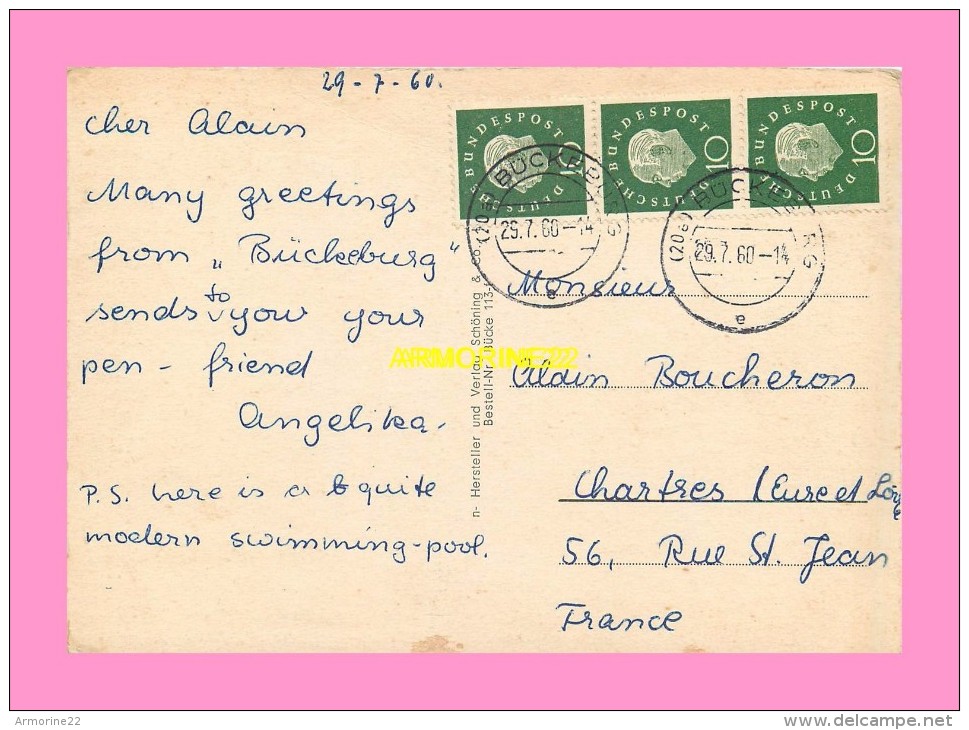 29-7-60.
cher Alain
Many greetings
from „Bückeburg"
sends to your your
pen-friend
Angelika.
P.S. here is a quite
modern swimming-pool.
DEUTSCHE BUNDESPOST
10
DEUTSCHE BUNDESPOST
10
DEUTSCHE BUNDESPOST
10
BÜCKEBURG
29.7.60-14
e
BÜCKEBURG
29.7.60-14
e
n- Hersteller und Verlag Schöning & Co.,
Bestell-Nr. Bücke 113-
Monsieur
Alain Boucheron
Chartres (Eure et Loire
56, Rue St. Jean
France
ARMORINE22
Armorine22
http://www.delcampe.net